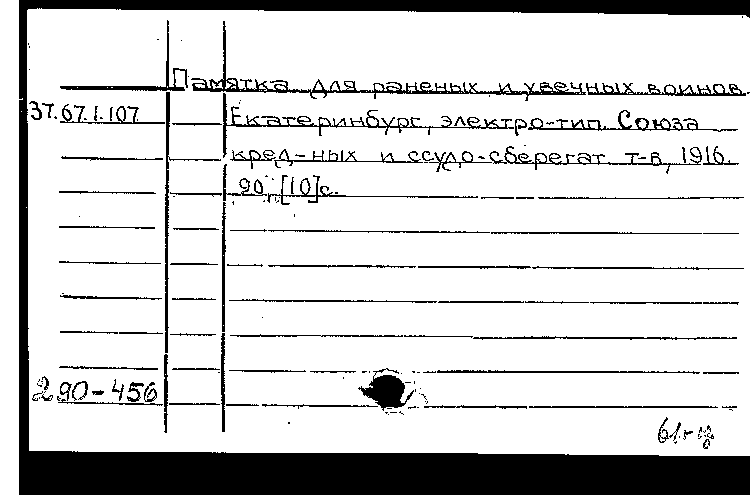 Памятка для раненых и увечных воинов.
37.67.1.107
Екатеринбург, электро-тип. Союза
кред-ных и ссудо-сберегат. т-в, 1916.
90, [10]с.
290-456